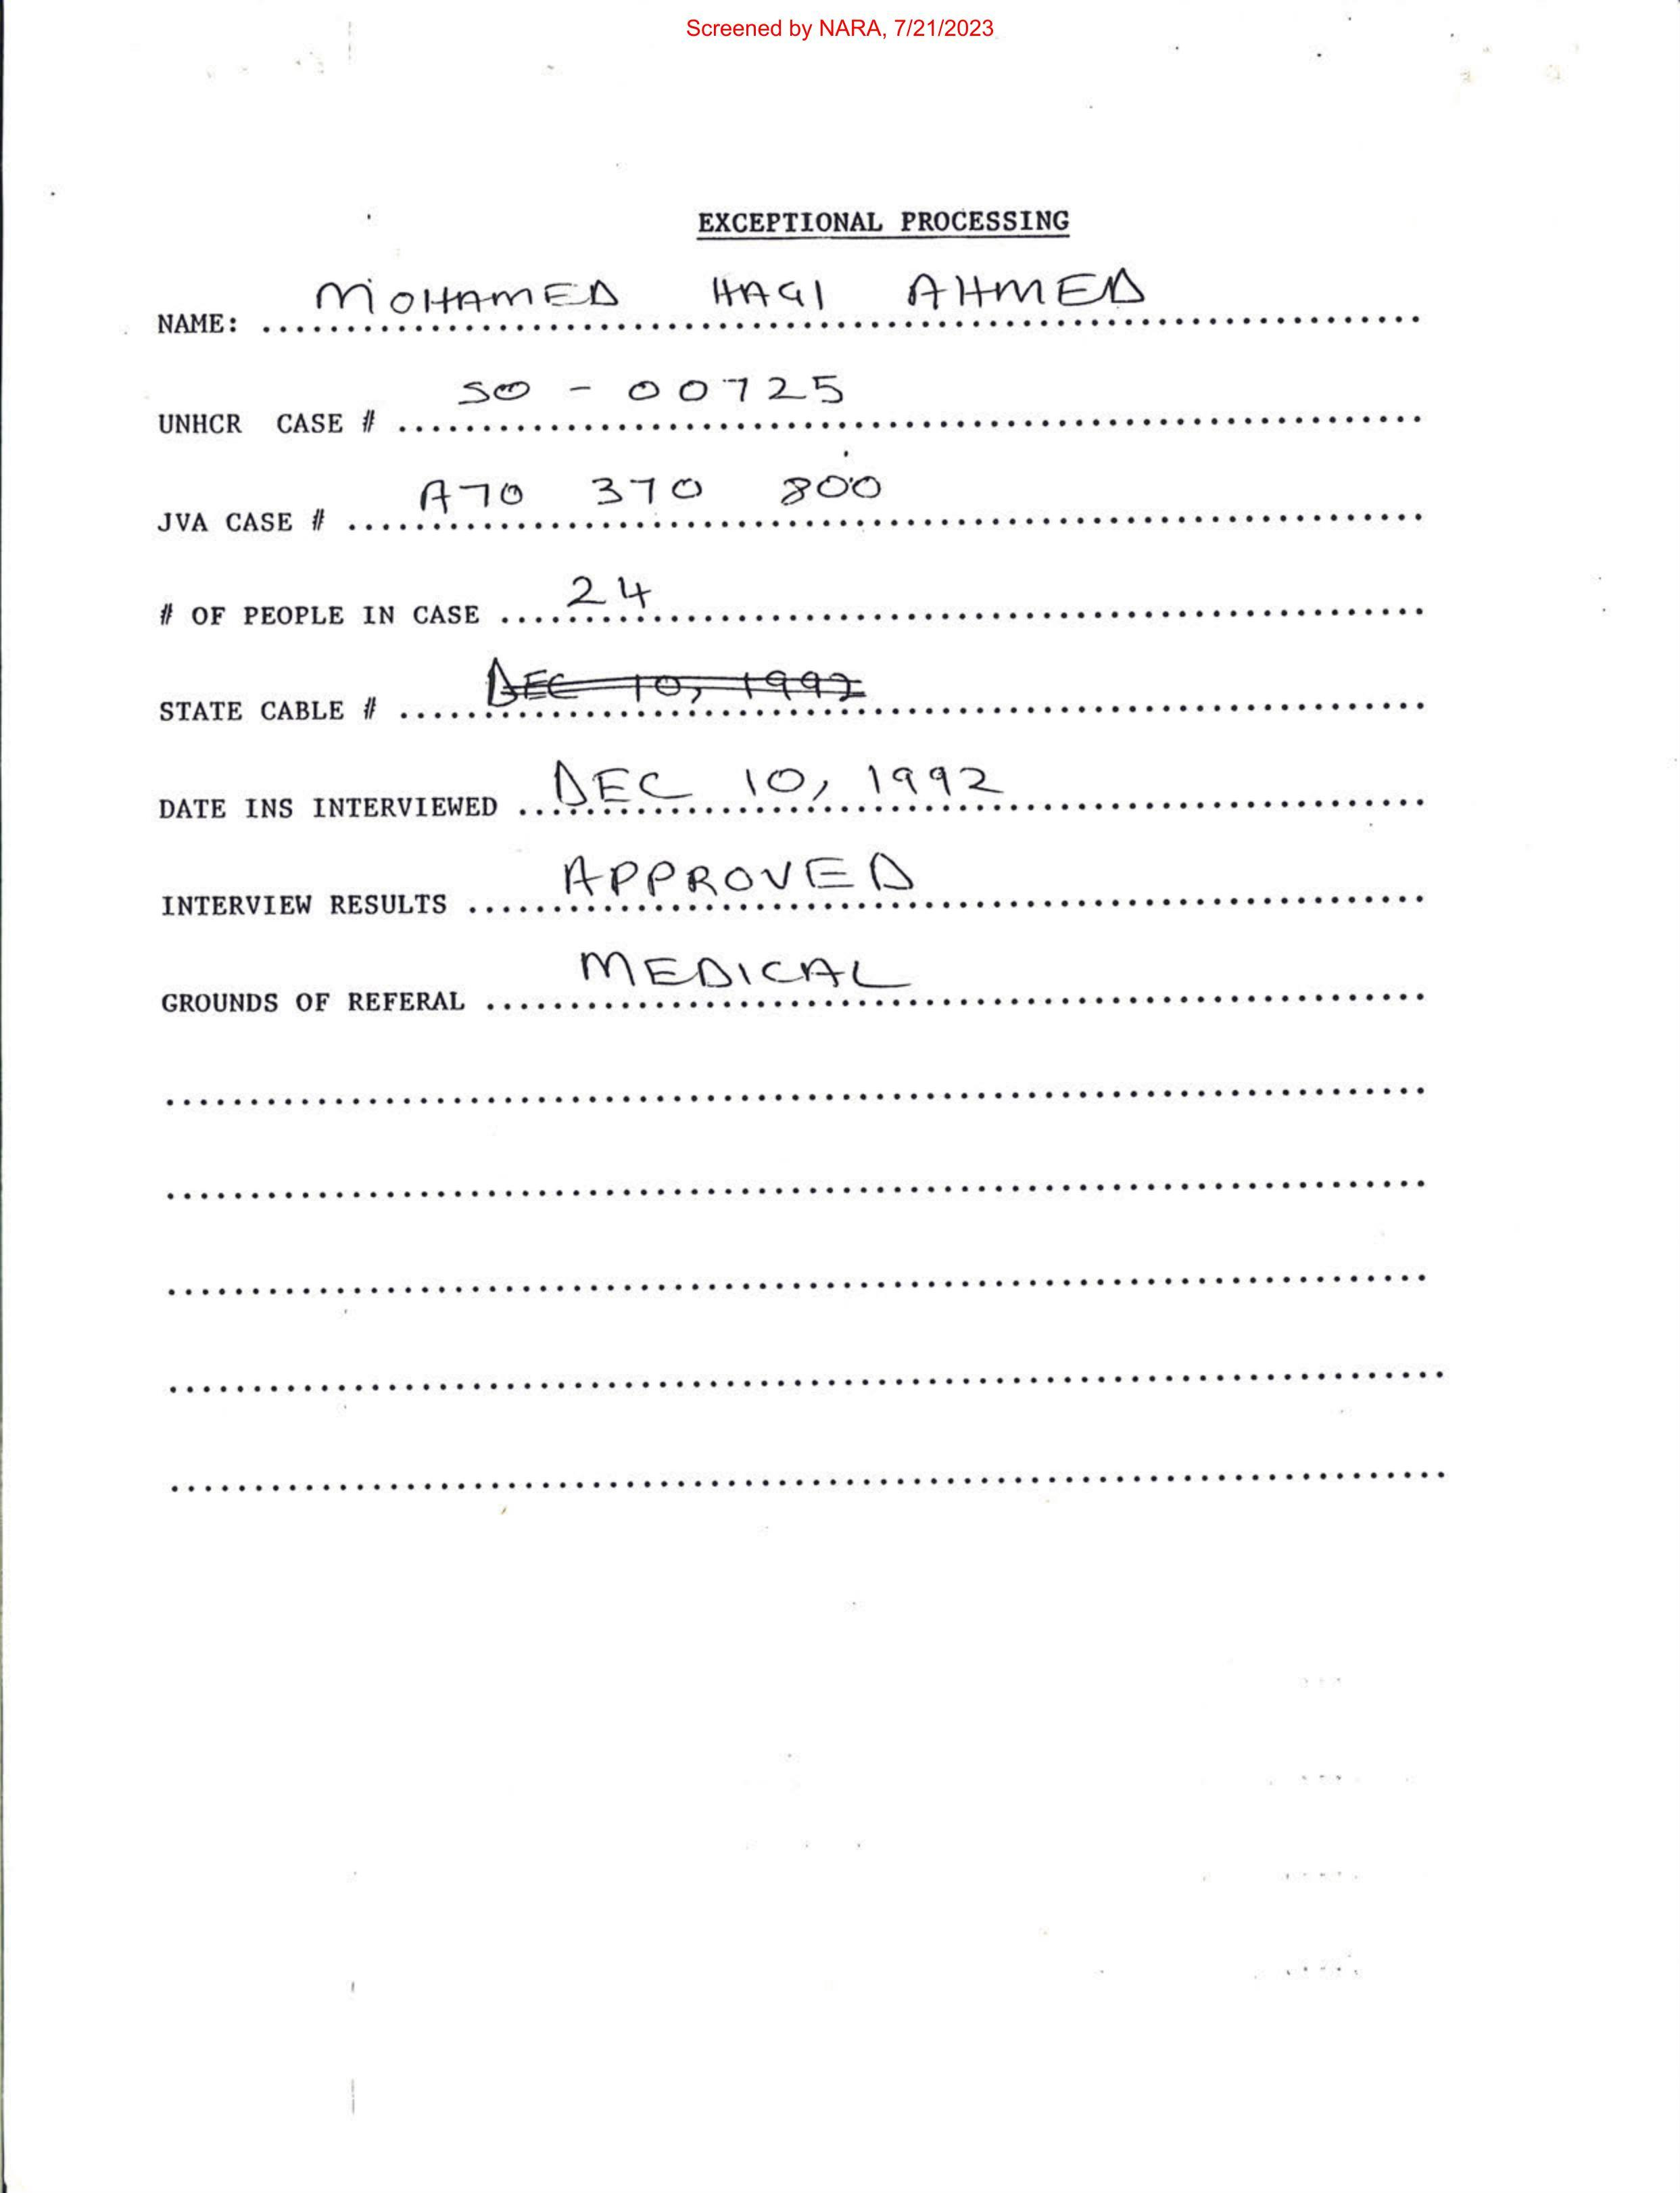 Screened by NARA, 7/21/2023
EXCEPTIONAL PROCESSING
NAME: MOHAMED HAGI AHMED
UNHCR CASE # SO - 00725
JVA CASE # A70 370 800
# OF PEOPLE IN CASE 24
STATE CABLE # DEC 10, 1992
DATE INS INTERVIEWED DEC 10, 1992
INTERVIEW RESULTS APPROVED
GROUNDS OF REFERAL MEDICAL